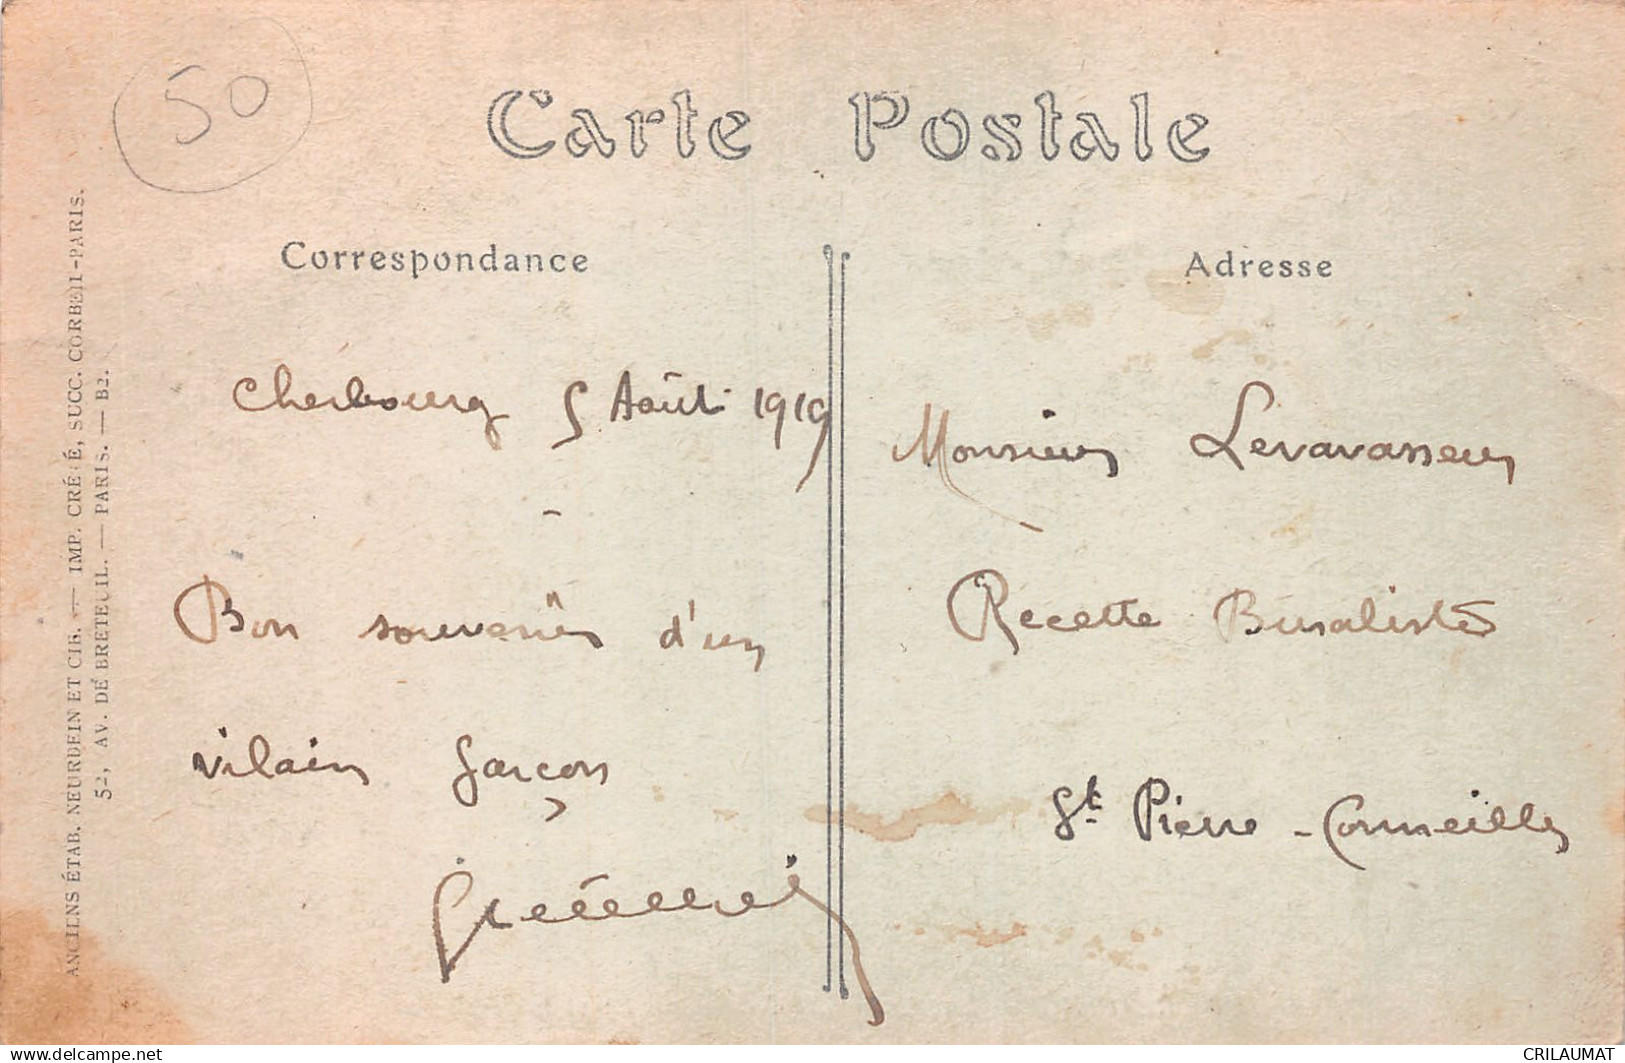 50
Carte Postale
Correspondance
Adresse
Cherbourg 5 Août 1919
Bon souvenir d'un
vilain garçon
Monsieur Levavasseur
Recette Buraliste
St Pierre - Cormeilles
ANCIENS ÉTAB. NEURDEIN ET CIE. — IMP. CRÉTÉ, SUCC. CORBEIL-PARIS.
52, AV. DE BRETEUIL. — PARIS. — B2.
www.delcampe.net
CRILAUMAT